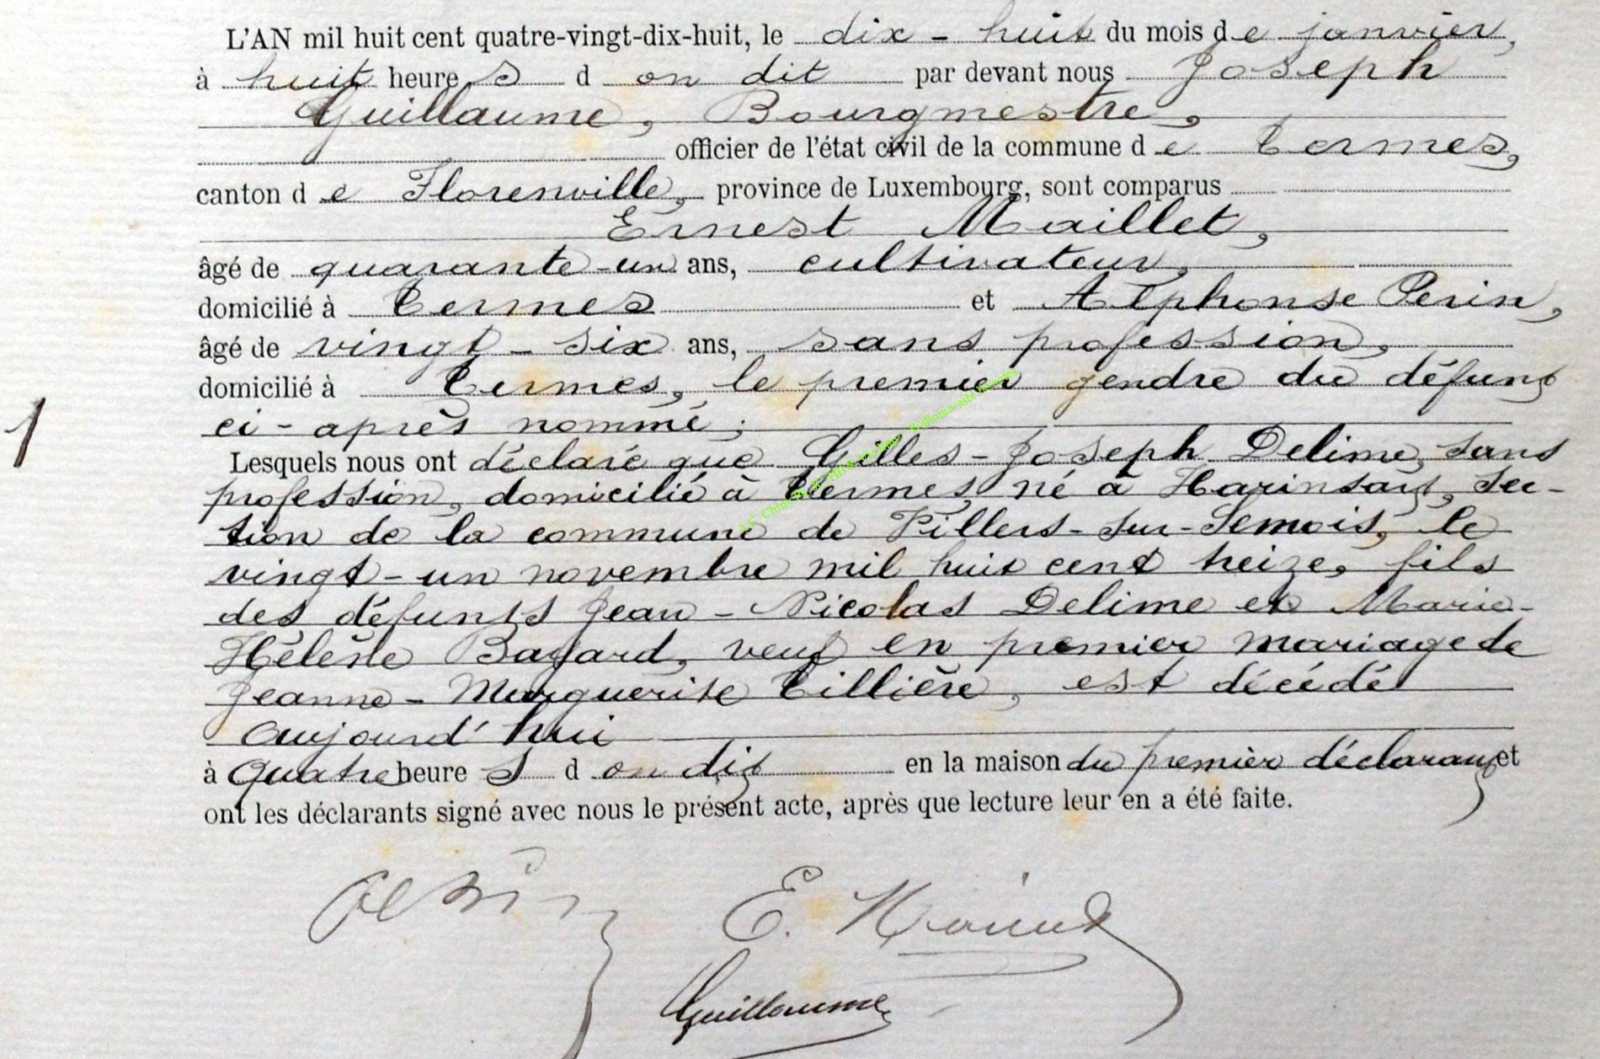 L'AN mil huit cent quatre-vingt-dix-huit, le dix-huit du mois de janvier,
à huit heures d on dit par devant nous Joseph
Guillaume, Bourgmestre,
officier de l'état civil de la commune de Termes,
canton de Florenville, province de Luxembourg, sont comparus
Ernest Maillet,
âgé de quarante-un ans, cultivateur,
domicilié à Termes et Alphonse Perin,
âgé de vingt-six ans, sans profession,
domicilié à Termes, le premier gendre du défunt
ci-après nommé;
1
Lesquels nous ont déclaré que Gilles-Joseph Delime, sans
profession, domicilié à Termes, né à Harinsart, sec-
tion de la commune de Villers-sur-Semois, le
vingt-un novembre mil huit cent treize, fils
des défunts Jean-Nicolas Delime et Marie-
Hélène Bayard, veuf en premier mariage de
Jeanne-Marguerite Tillière, est décédé
aujourd'hui
à quatre heures d on dit en la maison du premier déclarant et
ont les déclarants signé avec nous le présent acte, après que lecture leur en a été faite.
Perin E. Maillet
Guillaume